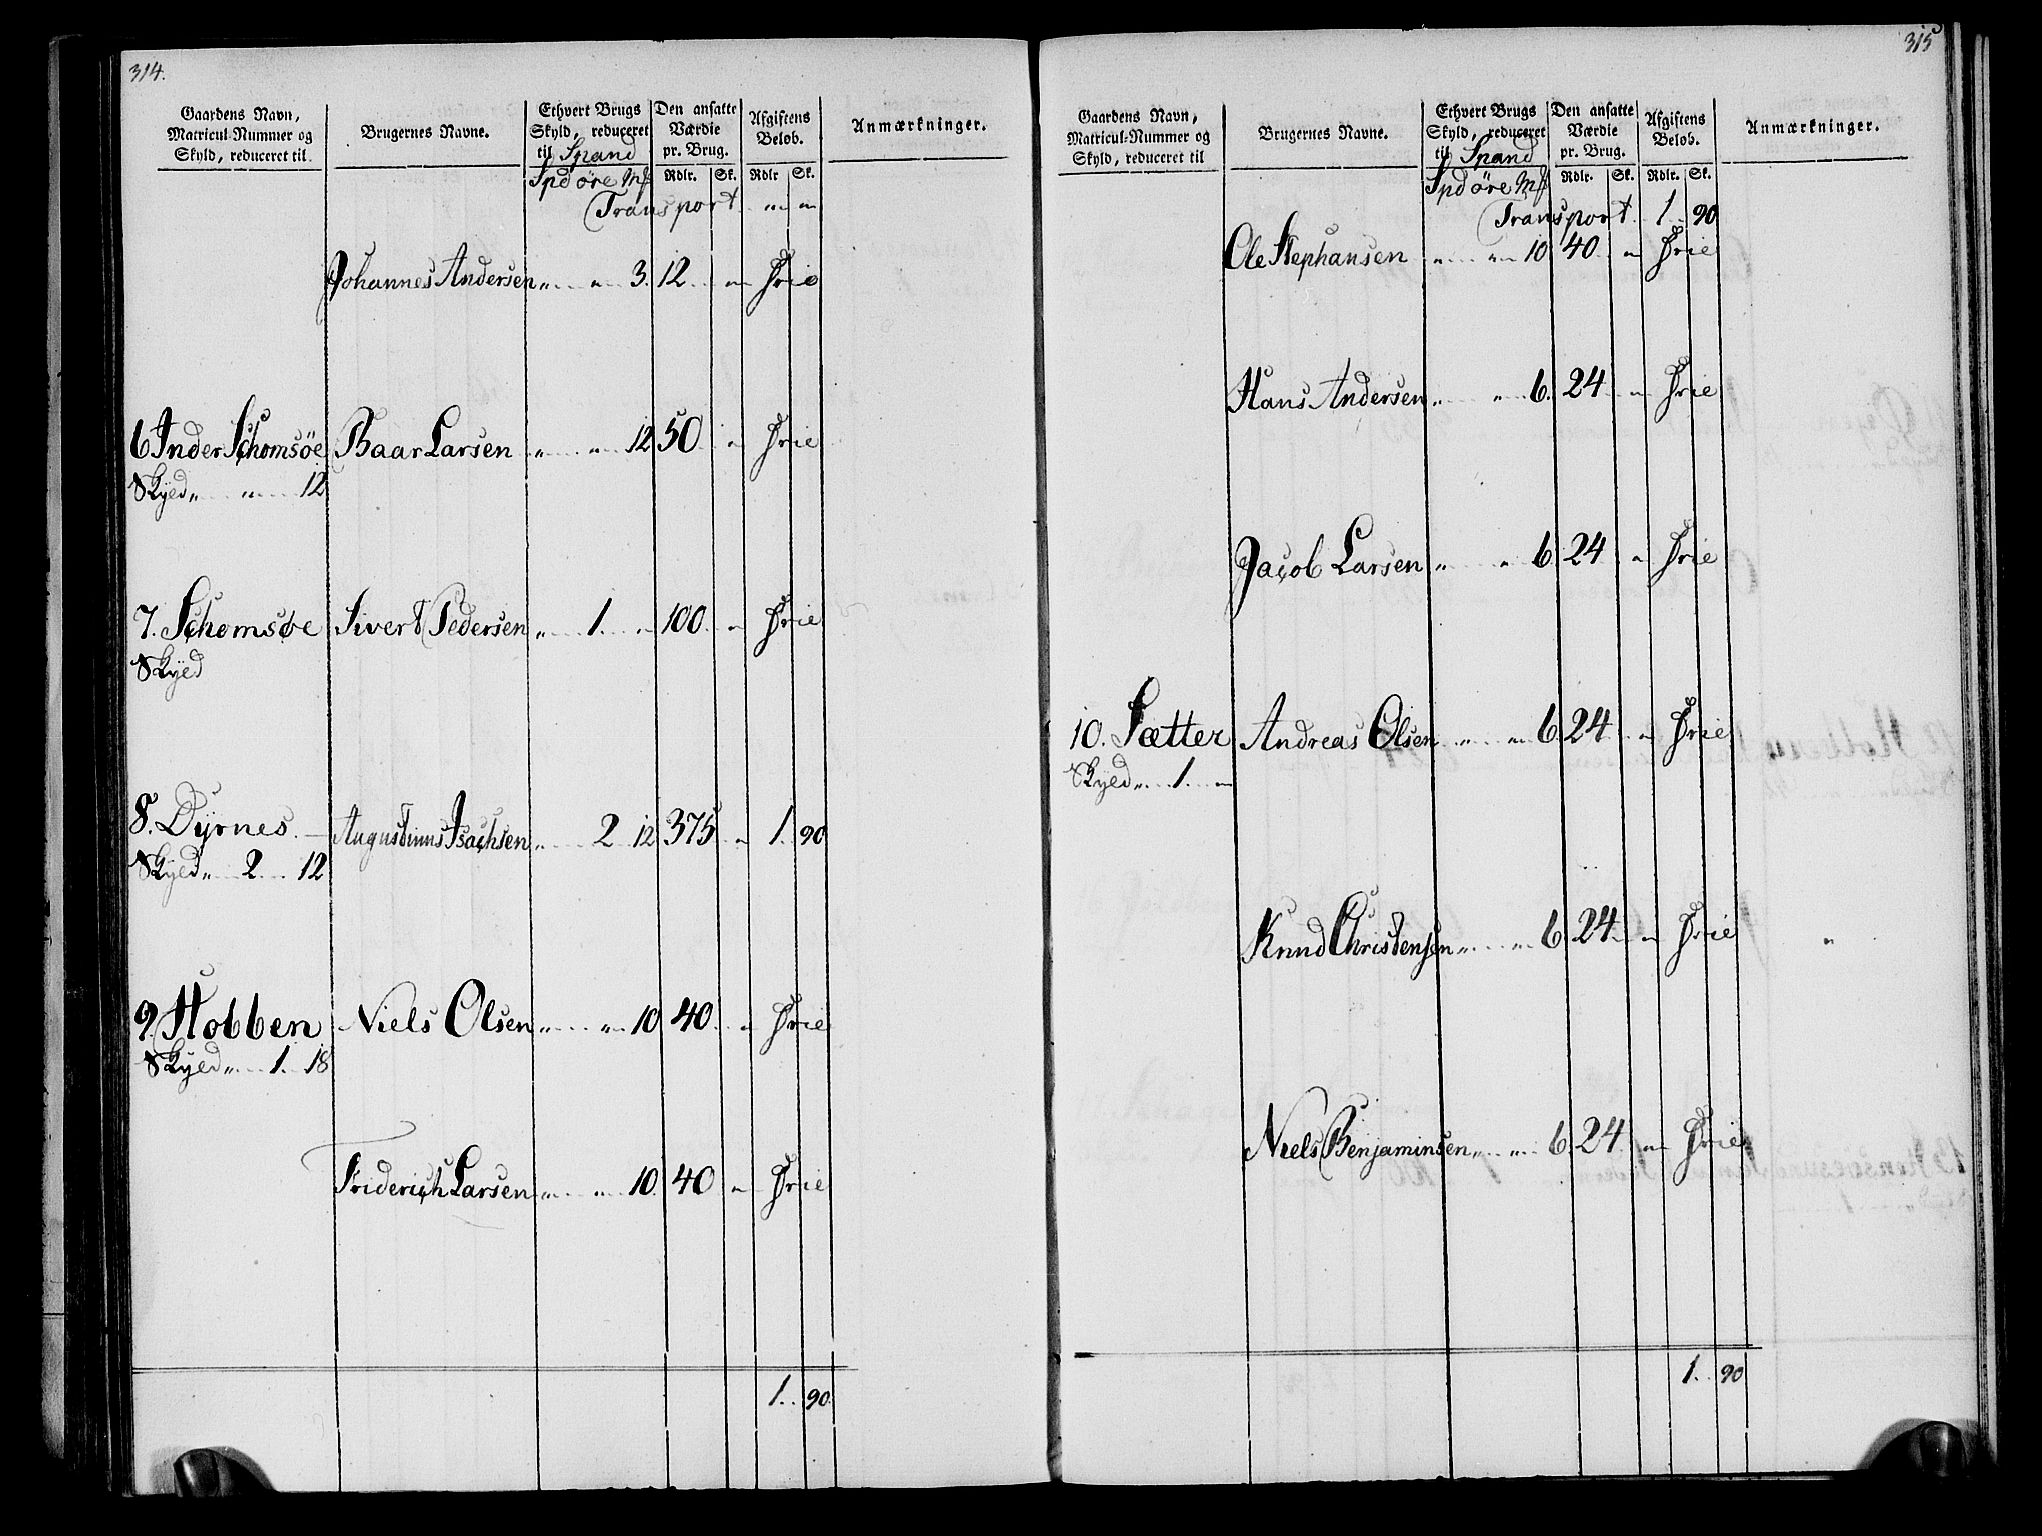 314.
Gaardens Navn, Matricul-Nummer og Skyld, reduceret til
Brugernes Navne.
Ethvert Brugs Skyld, reduceret til Spand
Den ansatte Værdie pr. Brug.
Afgiftens Beløb.
Anmærkninger.
Spd öre Mk Rdlr. Sk. Rdlr Sk.
Transport „ „
Johannes Andersen „ „ 3. 12 „ Frie
6 Inder Schomsöe Baar Larsen „ „ 12 50 „ Frie
Skyld „ „ 12
7. Schomsöe Sivert Pedersen „ 1. „ 100 „ Frie
Skyld
8. Dyrnes. Augustinus Isachsen „ 2 12 375 „ 1. 90
Skyld „ 2 12
9. Hobben Niels Olsen „ „ 10 40 „ Frie
Skyld „ 1. 18
Friderich Larsen „ „ 10 40 „ Frie
1. 90.
315
Gaardens Navn, Matricul-Nummer og Skyld, reduceret til
Brugernes Navne.
Ethvert Brugs Skyld, reduceret til Spand
Den ansatte Værdie pr. Brug.
Afgiftens Beløb.
Anmærkninger.
Spd öre Mk Rdlr. Sk. Rdlr. Sk.
Transport 1 90
Ole Stephansen „ „ 10 40 „ Frie
Hans Andersen „ „ 6. 24 „ Frie
Jacob Larsen „ „ 6 24 „ Frie
10. Sætter Andreas Olsen „ „ 6 24 „ Frie
Skyld „ 1. „
Knud Christensen „ „ 6 24 „ Frie „
Niels Benjaminsen „ „ 6 24 „ Frie
1. 90